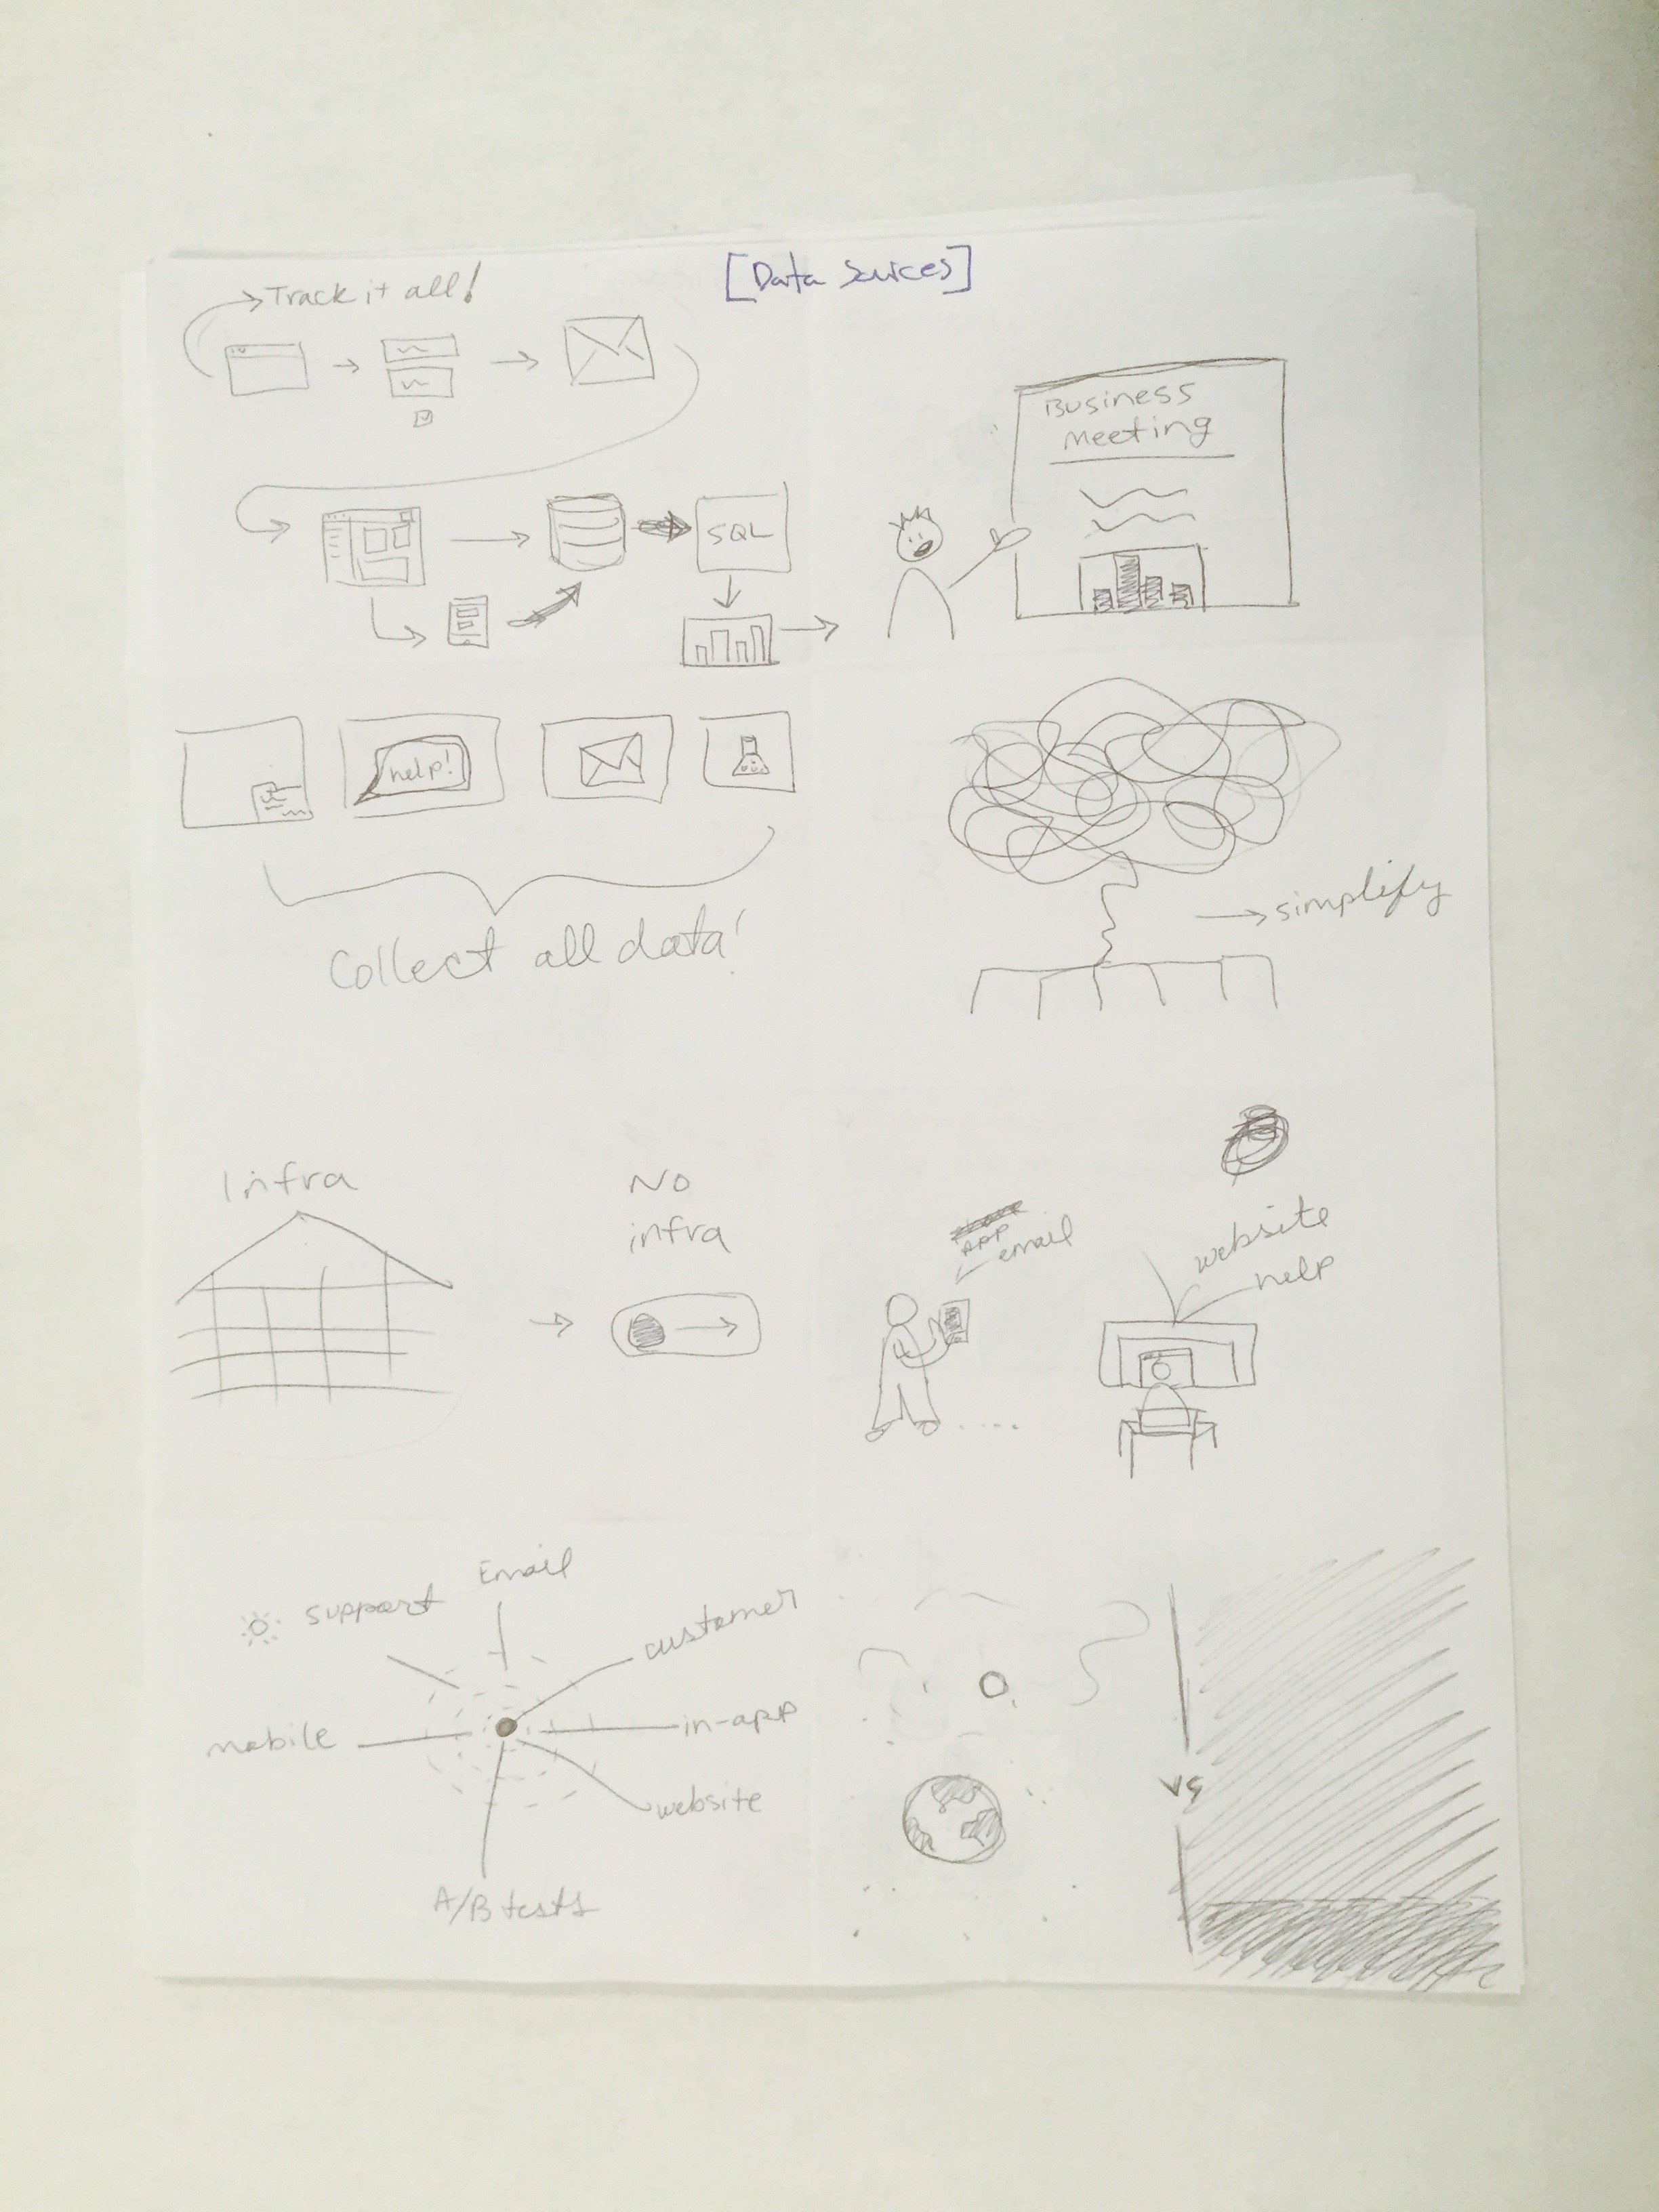 [Data Sources]
Track it all!
Business
Meeting
SQL
help!
Collect all data!
simplify
Infra
No
infra
app
email
website
help
Support
Email
customer
mobile
in-app
website
A/B tests
vs